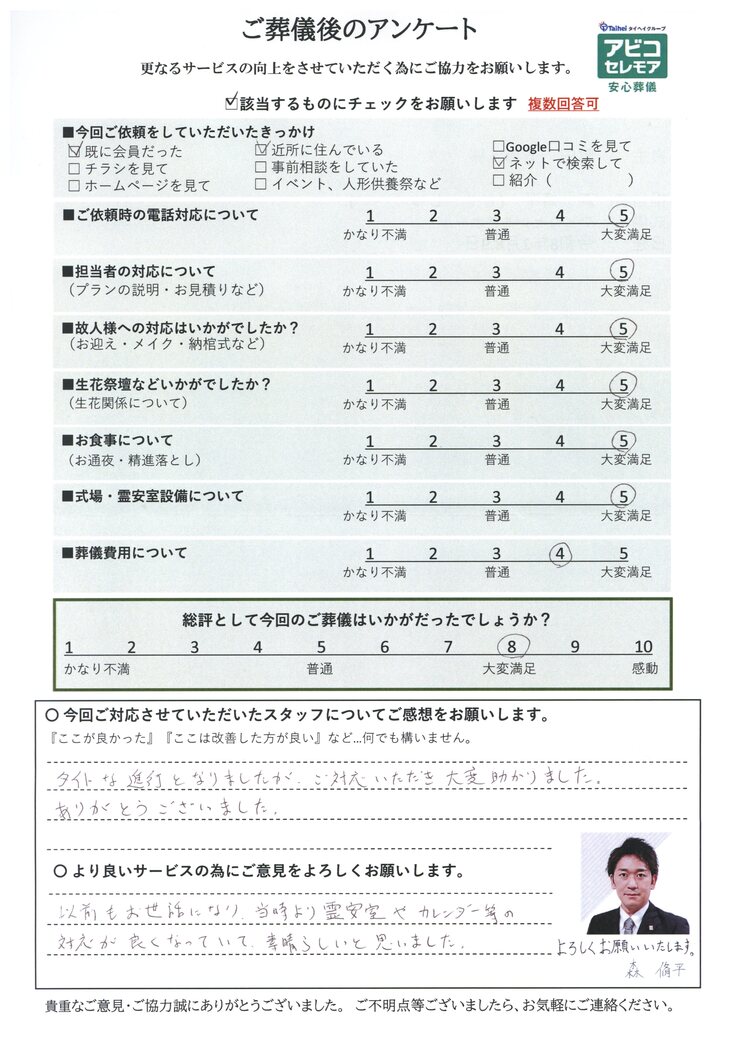 ご葬儀後のアンケート
Taihei タイヘイグループ
アビコ
セレモア
安心葬儀
更なるサービスの向上をさせていただく為にご協力をお願いします。
☑該当するものにチェックをお願いします 複数回答可
■今回ご依頼をしていただいたきっかけ
☑既に会員だった ☑近所に住んでいる □Google口コミを見て
□チラシを見て □事前相談をしていた ☑ネットで検索して
□ホームページを見て □イベント、人形供養祭など □紹介（ ）
■ご依頼時の電話対応について 1 2 3 4 5
かなり不満 普通 大変満足
■担当者の対応について 1 2 3 4 5
（プランの説明・お見積りなど） かなり不満 普通 大変満足
■故人様への対応はいかがでしたか？ 1 2 3 4 5
（お迎え・メイク・納棺式など） かなり不満 普通 大変満足
■生花祭壇などいかがでしたか？ 1 2 3 4 5
（生花関係について） かなり不満 普通 大変満足
■お食事について 1 2 3 4 5
（お通夜・精進落とし） かなり不満 普通 大変満足
■式場・霊安室設備について 1 2 3 4 5
かなり不満 普通 大変満足
■葬儀費用について 1 2 3 4 5
かなり不満 普通 大変満足
総評として今回のご葬儀はいかがだったでしょうか？
1 2 3 4 5 6 7 8 9 10
かなり不満 普通 大変満足 感動
〇 今回ご対応させていただいたスタッフについてご感想をお願いします。
『ここが良かった』『ここは改善した方が良い』など…何でも構いません。
タイトな進行となりましたが、ご対応いただき大変助かりました。
ありがとうございました。
〇 より良いサービスの為にご意見をよろしくお願いします。
以前もお世話になり、当時より霊安室やカレンダー等の
対応が良くなっていて、素晴らしいと思いました。
よろしくお願いいたします。
森 脩平
貴重なご意見・ご協力誠にありがとうございました。 ご不明点等ございましたら、お気軽にご連絡ください。